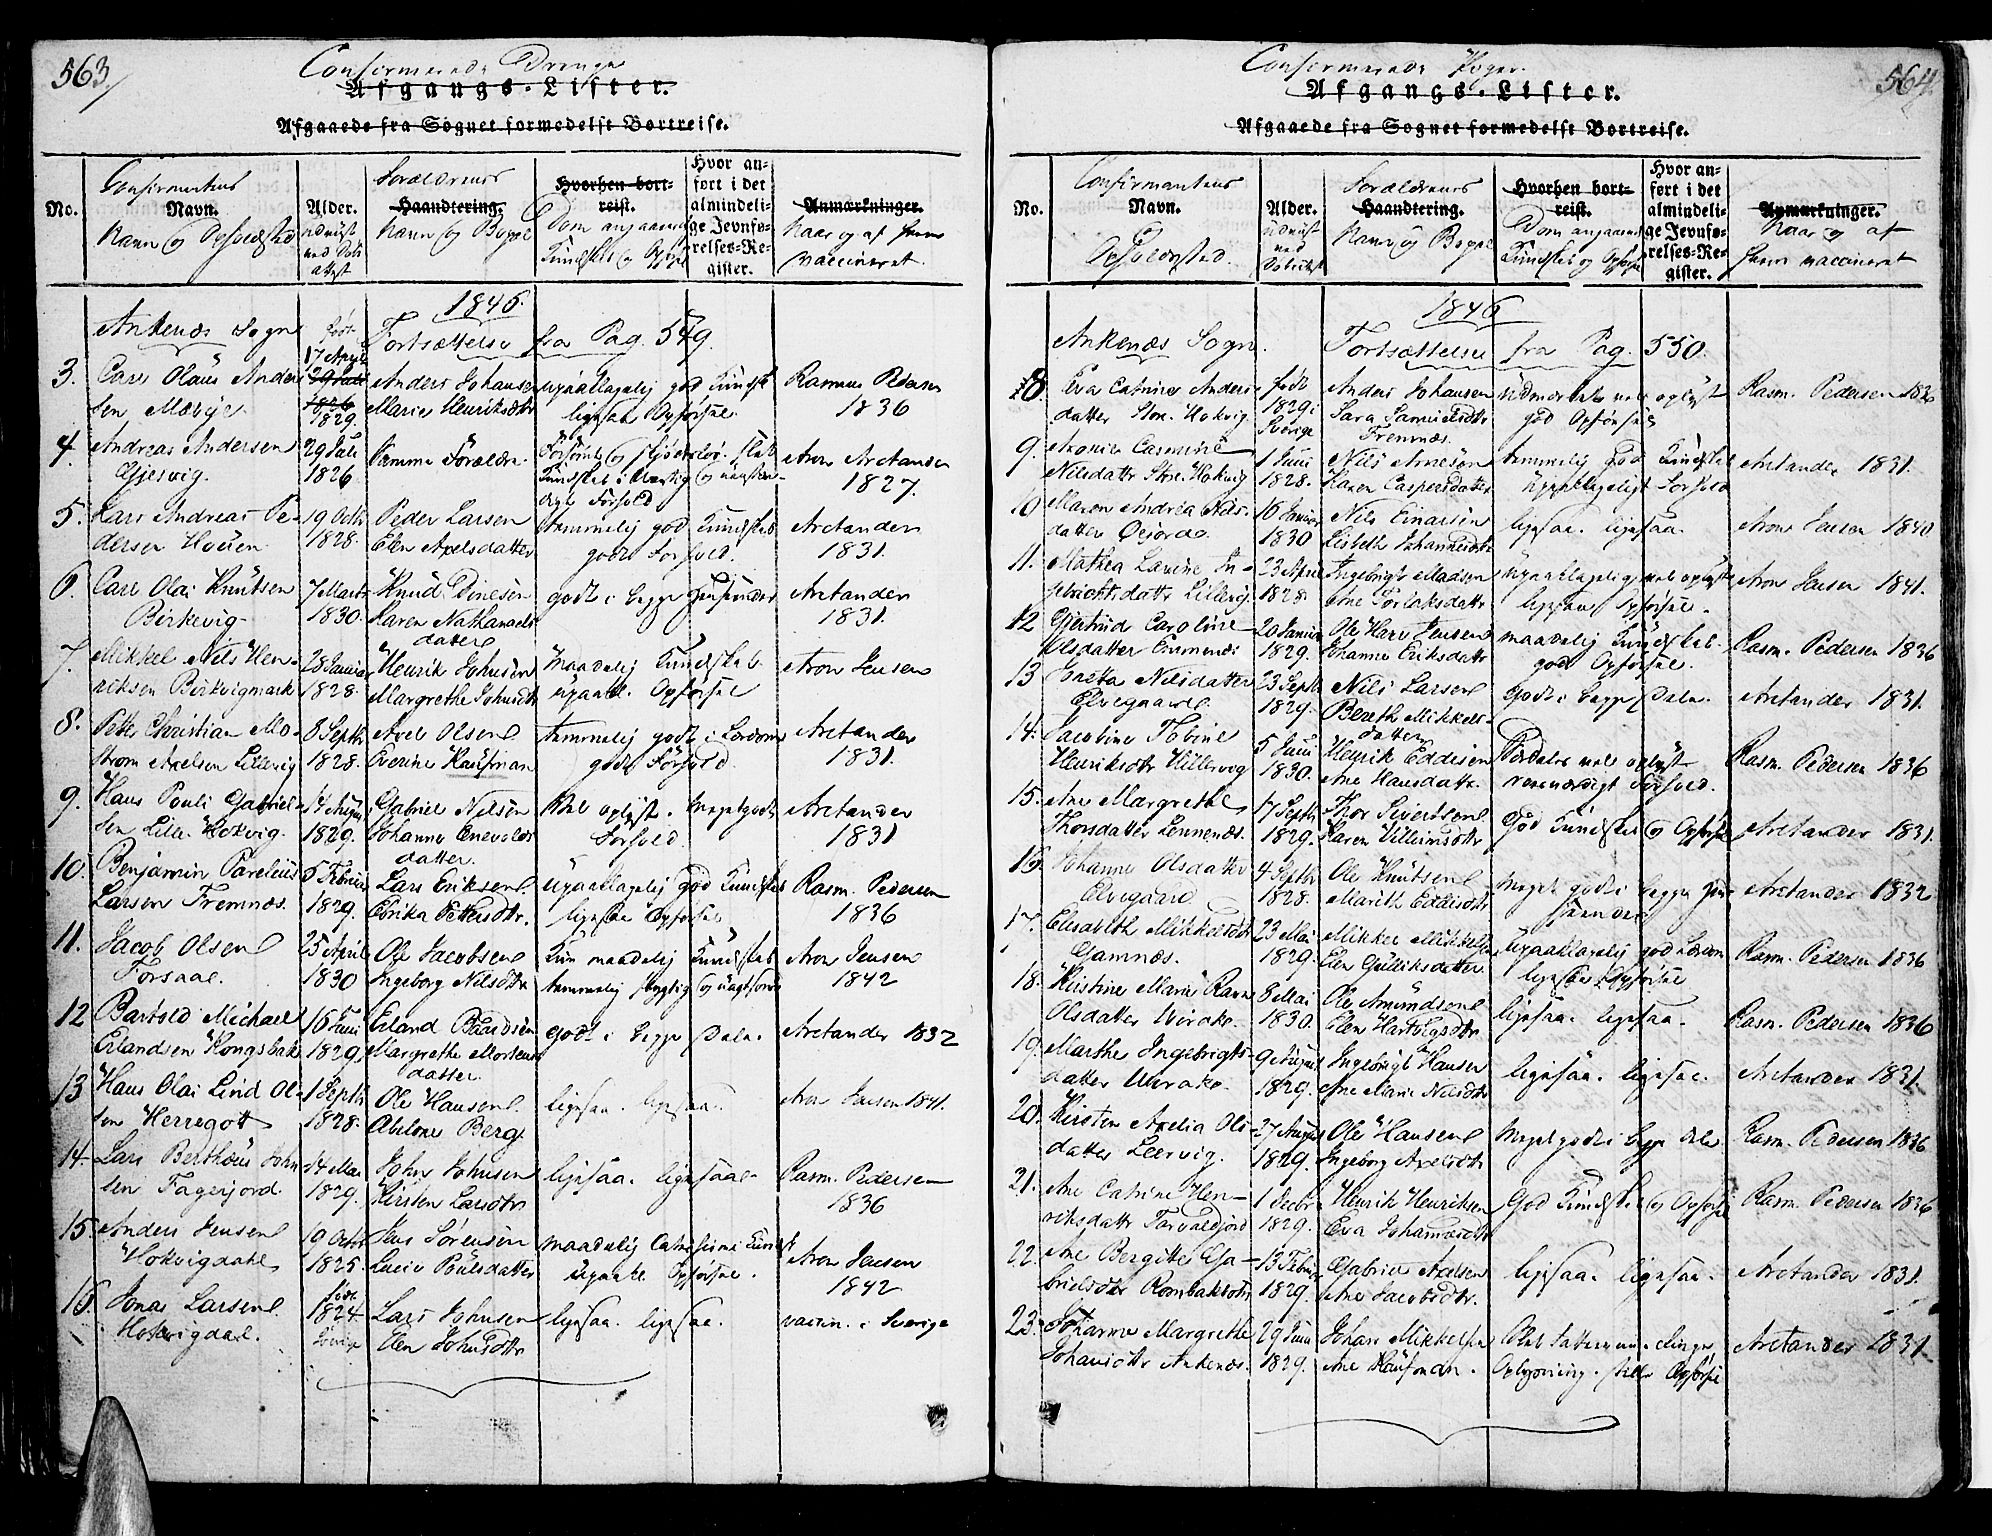 563.
Confirmerede Drenge
Afgangs-Lister.
Afgaaede fra Sognet formedelst Bortreise.
No.
Confirmantens
Navn.
Navn og Opholdsted
Alder.
udviist
ved Døbe
attest
Forældrenes
Haandtering.
Navn og Bopæl
Hvorhen bort-
reist.
Dom angaaende
Kundskab og Opførsel
Hvor an-
ført i det
almindeli-
ge Jevnfø-
relses-Re-
gister.
Anmærkninger.
Naar og af hvem
vaccineret.
1846.
Ankenæs Sogn
født
Fortsættelse fra Pag. 549.
3. Carl Olaus Ander-
sen
17 April
1826
1829.
Anders Johansen
Marie Henriksdtr
upaaklagelig god Kundsk
ligesaa Opførsel.
Rasmus Pedersen
1836
4. Andreas Andersen
Gjesvig.
29 Juli
1826
Samme Forældre
Kundskab i
Aron Arctander
1827.
5. Lars Andreas Pe-
dersen
19 Octbr
1828.
Peder Larsen
Elen Axelsdatter
temmelig god Kundskab
godt Forhold.
Arctander
1831.
6. Carl Olai Knutsen
Birkevig
7 Marts
1830.
Knud Dinesen
Karen Nathanaels-
datter
godt i begge Henseender
Arctander
1831.
7. Mikkel Nils Hen-
riksen Birkvigmark
28 Januar
1828.
Henrik Johnsen
Margrethe Johnsdtr
maadelig Kundskab
upaakl. Opførsel
Aron Jensen
8. Petter Christian Mo-
strom Axelsen Lillevig
8 Septbr
1828.
Axel Olsen
Everine Kaufman
temmelig godt i Lærdom
godt Forhold.
Arctander
1831.
9. Hans Pouli Gabriel-
sen Lille Hokvig.
14 Augus
1829.
Gabriel Nilsen
Johanna Enevolds
datter.
vel oplyst. meget godt
Forhold.
Arctander
1831
10. Benjamin Pareliius
Larsen Fremnæs.
5 Februar
1829.
Lars Eriksen
Ebrika Pettersdtr.
upaaklagelig god Kundskab
ligesaa Opførsel
Rasm. Pedersen
1836
11. Jacob Olsen
Forsaal.
25 April
1830
Ole Jacobsen
Ingeborg Nilsdtr
Kun maadelig Kundskab
temmelig
Aron Jensen
1842
12 Bartold Michael
Erlandsen Kongsbak
16 Juni
1829.
Erland Baardsen
Margrethe Mortens
datter.
godt i begge Dele.
Arctander 1832
13 Hans Olai Lind Ol-
sen Herregott
1 Septbr
1828.
Ole Hansen.
Abelone Berg
ligesaa. ligesaa.
Aron Jensen 1841.
14. Lars Berthæus John
sen Fagerjord.
14 Mai
1829.
John Johnsen
Kirsten Larsdtr
ligesaa. ligesaa.
Rasm. Pedersen
1836
15. Anders Jensen
Hokvigdahl
19 Octbr
1825
Jens Sørensen
Lucie Poulsdatter
maadelig Catechismi Kundsk
upaakl Opførsel.
Aron Jensen
1842
16. Jonas Larsen
Hokvigdal.
født
1824.
Sverige
Lars Johnsen
Elen Johnsdtr
ligesaa. ligesaa.
vaccin. i Sverige
564.
Confirmerede Piger.
Afgangs-Lister.
Afgaaede fra Sognet formedelst Bortreise.
No.
Confirmantens
Navn.
Opholdsted.
Alder.
udviist
ved
Døbeattest
Forældrenes
Haandtering.
Navn og Bopæl
Hvorhen bort-
reist.
Dom angaaende
Kundskab og Opførsel
Hvor an-
ført i det
almindeli-
ge Jevnfø-
relses-Re-
gister.
Anmærkninger.
Naar og af
hvem vaccineret
1846
Ankenæs Sogn.
Fortsættelse fra Pag. 550.
8. Eva Catrine Anders-
datter Stor. Hokvig.
født
1829 i
Sverige
Anders Johansen
Sara Samuelsdtr
Fremnæs.
udmærket vel oplyst
god Opførsel
Rasm. Pedersen 1836
9. Casmine
Nilsdattr Stor. Hokvig
1 Juni
1828.
Nils Arnesen
Karen Caspersdatter
temmelig god Kundskab
upaaklageligt Forhold
Arctander 1831.
10 Maren Andrea Nils-
datter Øejorde.
16 Januar
1830
Nils Einarsen
Lisbeth Johannesdtr
ligesaa. ligesaa.
Aron Jensen 1840
11. Mathea Lavine In-
gebrigtsdattr Lillevig.
23 April
1828.
Ingebrigt Madsen
Ane Torlaksdattr
upaaklagelig vel oplyst
ligesaa Opførsel.
Aron Jensen 1841.
12 Gjertrud Caroline
Olsdatter Emmenæs
20 Januar
1829.
Ole Hans Jensen
Johanna Eriksdattr
maadelig Kundskab.
god Opførsel.
Rasm. Pedersen 1836
13 Greta Nilsdatter
Elvegaard.
23 Septbr
1829.
Nils Larsen
Bereth Mikkels-
datter
godt i begge Dele.
Arctander 1831.
14. Jacobine Tobine
Henriksdtr Hillervog
5 Juni
1830.
Henrik Eddisen
Ane Hansdattr.
vel oplyst
Forhold.
Rasm. Pedersen 1836
15. Ane Margrethe
Thorsdatter Lennenæs.
17 Septbr
1829.
Thor Sivertsen
Karen Villumsdtr
god Kundskab og Opførsel
Arctander 1831.
16. Johanne Olsdatter
Elvegaard
4 Septbr
1828.
Ole Knutsen
Marith Eddisdtr
meget godt i begge Hen-
seender
Arctander 1832
17. Elisabeth Mikkelsdtr
Gamnæs.
23 Mai
1829.
Mikkel Mikkelsen
Elen Gulliksdatter
upaaklagelig god Lærdom
ligesaa Opførsel
Rasm. Pedersen 1836
18. Kirstine Marie Ravn
Olsdatter Virake.
8 Mai
1830.
Ole Amundsen
Elen Hartvigsdtr
ligesaa. ligesaa.
Rasm. Pedersen 1836
19. Marthe Ingebrigts-
datter Virake.
9 August
1829.
Ingebrigt Hansen
Ane Marie Nilsdtr
ligesaa. ligesaa.
Arctander 1831.
20. Kirsten Axelia Ols-
datter Leervig.
27 August
1829.
Ole Hansen
Ingeborg Axelsdtr
meget godt i begge Dele
Rasm. Pedersen 1836
21. Ane Catrine Hen-
riksdattr Tarvaldjord
1 Decbr
1829.
Henrik Henriksen
Eva Johannesdtr
god Kundskab og Opførsel
Rasm. Pedersen 1836
22. Ane Bergitte Ga-
brielsdtr Rombaksbotn
13 Februar
1829.
Gabriel Axelsen
Ane Jacobsdtr.
ligesaa. ligesaa.
Arctander 1831.
23. Johanne Margrethe
Johansdtr Ankenæs.
29 Juni
1829.
Johan Mikkelsen
Ane Kaufman.
Oplysning. Opførsel
Arctander 1831.